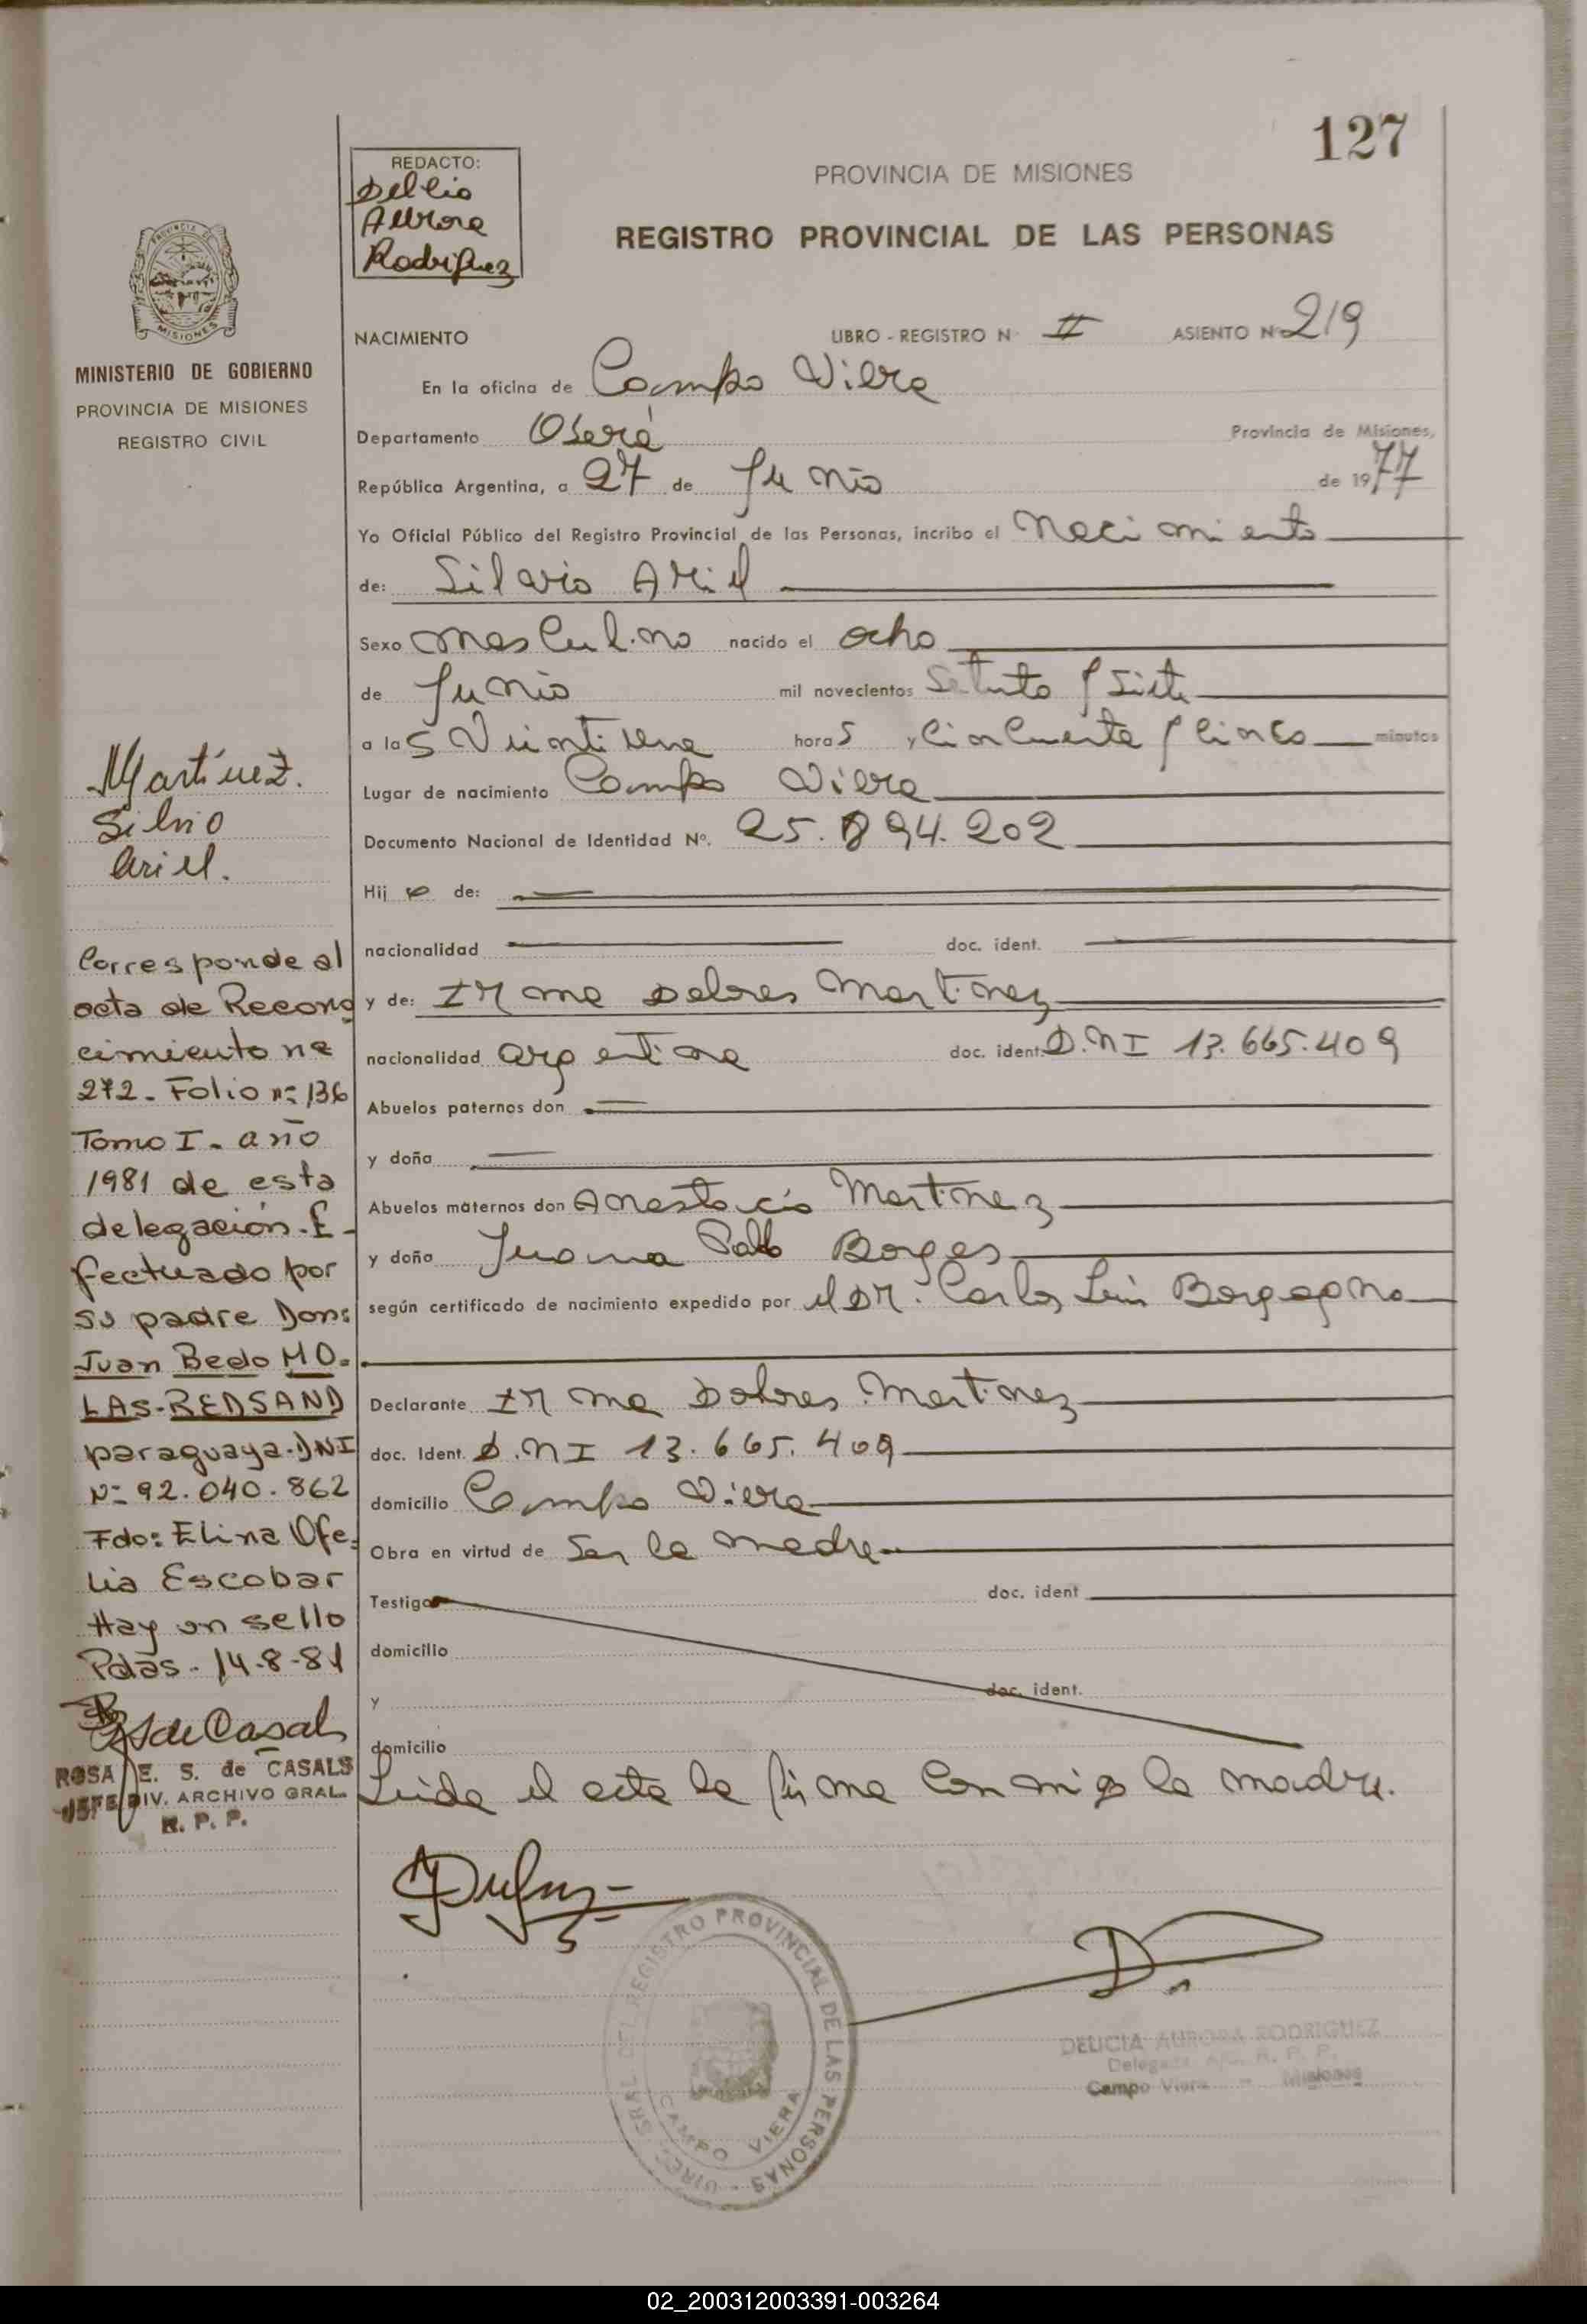 127
REDACTO:
Delicia
Aurora
Rodriguez
PROVINCIA DE MISIONES
REGISTRO PROVINCIAL DE LAS PERSONAS
NACIMIENTO LIBRO - REGISTRO Nº II ASIENTO Nº 219
En la oficina de Campo Viera
Departamento Oberá Provincia de Misiones,
República Argentina, a 27 de Junio de 1977
Yo Oficial Público del Registro Provincial de las Personas, incribo el Nacimiento
de: Silvio Ariel
Sexo masculino nacido el ocho
de Junio mil novecientos Setenta y Siete
a las Veintiuna horas y Cincuenta y Cinco minutos
Lugar de nacimiento Campo Viera
Documento Nacional de Identidad Nº. 25.894.202
Hijo de:
nacionalidad doc. ident.
y de: Irma Dolores Martinez
nacionalidad argentina doc. ident. D.N I 13.665.409
Abuelos paternos don
y doña
Abuelos maternos don Anastacio Martinez
y doña Juana Borges
según certificado de nacimiento expedido por el Dr. Carlos Luis
Declarante Irma Dolores Martinez
doc. Ident. D.N I 13.665.409
domicilio Campo Viera
Obra en virtud de Ser la madre
Testigos doc. ident
domicilio
y doc. ident.
domicilio
Leida el acta la firma conmigo la madre.
PROVINCIA DE
MISIONES
MINISTERIO DE GOBIERNO
PROVINCIA DE MISIONES
REGISTRO CIVIL
Martinez.
Silvio
Ariel.
Corresponde al
acta de Recono
cimiento nº
272- Folio nº 136
Tomo I- año
1981 de esta
delegación. E-
fectuado por
su padre Don:
Juan Bedo MO-
LAS-REDSAND
paraguaya-DNI
Nº 92.040.862
Fdo: Elina Ofe-
lia Escobar
Hay un sello
Pdas- 14-8-81
RS de Casals
ROSA E. S. de CASALS
JEFE DIV. ARCHIVO GRAL.
R. P. P.
DEL REGISTRO PROVINCIAL DE LAS PERSONAS
CAMPO VIERA
DELICIA AURORA RODRIGUEZ
Delegada R. P. P.
Campo Viera - Misiones
02_200312003391-003264